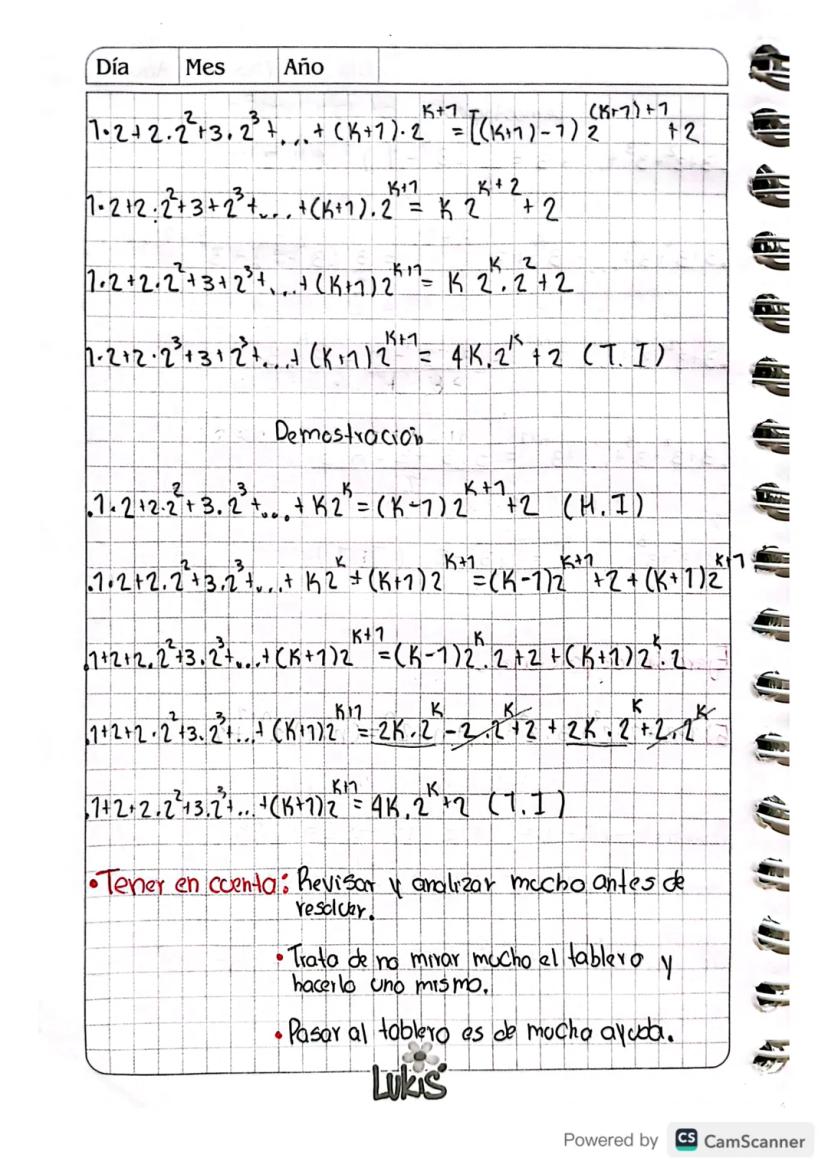 Día Mes Año
1·2+2·2²+3·2³+...+(K+1)·2^(K+1) = [(K+1)-1) 2^((K+1)+1) +2
1·2+2·2²+3+2³+...+(K+1).2^(K+1) = K 2^(K+2) +2
1·2+2·2²+3+2³+...+(K+1)2^(K+1) = K 2^K.2²+2
1·2+2·2³+3+2³+...+(K+1)2^(K+1) = 4K.2^K +2 (T.I)
Demostración
.1·2+2·2²+3.2³+...+K2^K=(K-1)2^(K+1)+2 (H.I)
.1·2+2.2²+3.2³+...+ K2^K+(K+1)2^(K+1)=(K-1)2^(K+1)+2+(K+1)2^(K+1)
.1+2+2.2²+3.2³+...+(K+1)2^(K+1)=(K-1)2^K.2+2+(K+1)2^K.2
.1+2+2·2²+3.2³+...+(K+1)2^(K+1)=2K.2^K-2.2^K+2+2K.2^K+2.2^K
.1+2+2.2²+3.2³+...+(K+1)2^(K+1)=4K.2^K+2 (T.I)
•Tener en cuenta: Revisar y analizar mucho antes de
resolver.
•Trata de no mirar mucho el tablero y
hacerlo uno mismo.
•Pasar al tablero es de mucha ayuda.
Lukis
Powered by CS CamScanner